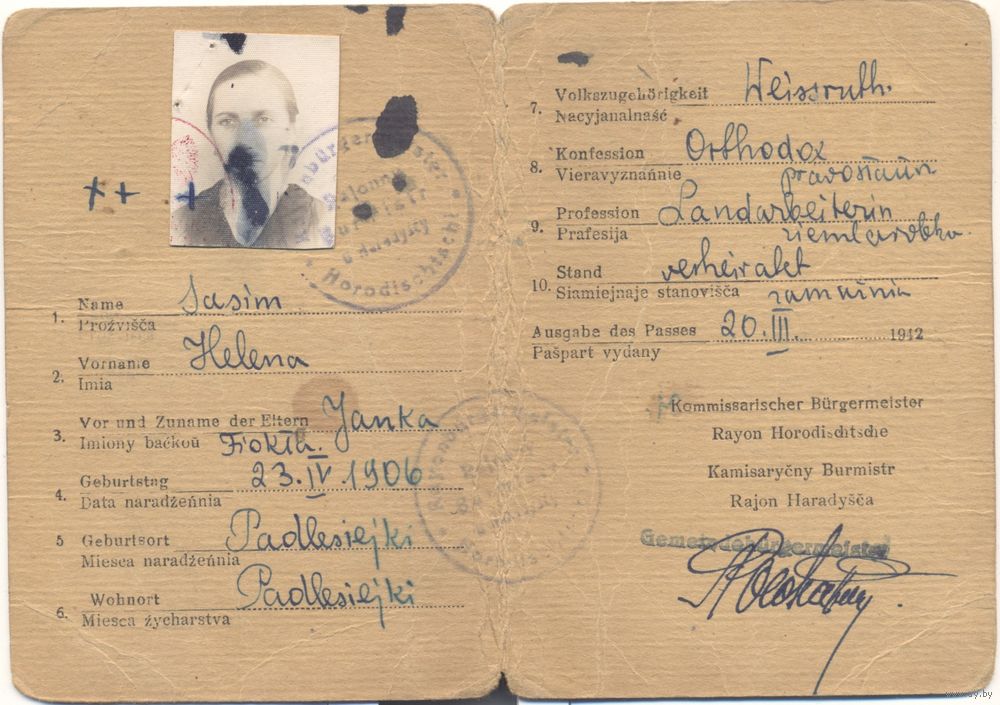 1. Name Sasim
Proźvišča
2. Vorname Helena
Imia
3. Vor und Zuname der Eltern Janka
Imiony baćkoŭ Fiokła.
4. Geburtstag 23.IV 1906
Data naradžeńnia
5 Geburtsort Padlesiejki
Miesca naradžeńnia
6. Wohnort Padlesiejki
Miesca źycharstva
Horodischtschi
7. Volkszugehörigkeit Weissruth.
Nacyjanalnaść
8. Konfession Orthodox
Vieravyznańnie
9. Profession Landarbeiterin
Prafesija
10. Stand verheiratet
Siamiejnaje stanovišča
Ausgabe des Passes 20.III. 1942
Pašpart vydany
Kommissarischer Bürgermeister
Rayon Horodischtsche
Kamisaryčny Burmistr
Rajon Haradyšča
Gemeindebürgermeister